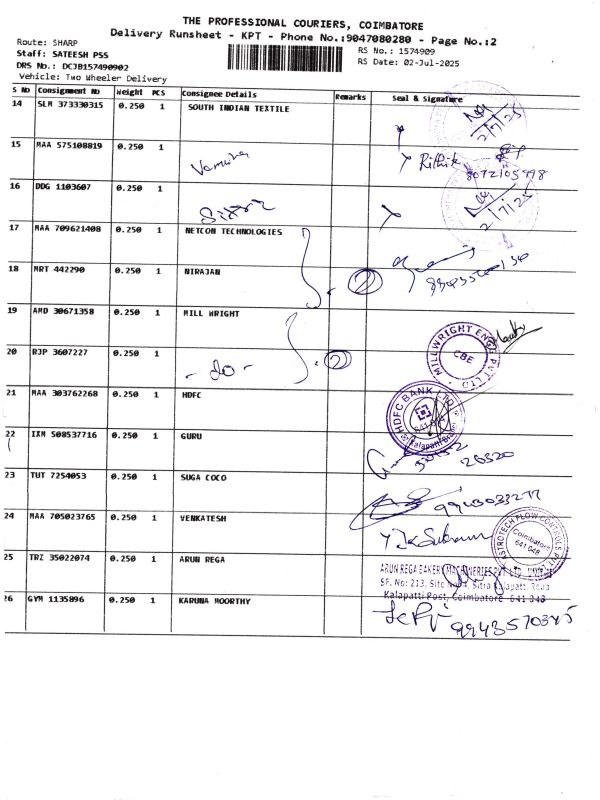 THE PROFESSIONAL COURIERS, COIMBATORE
Delivery Runsheet - KPT - Phone No.:9047080280 - Page No.:2
Route: SHARP
Staff: SATEESH PSS
DRS No.: DCJB157490902
Vehicle: Two Wheeler Delivery
RS No.: 1574909
RS Date: 02-Jul-2025
S No Consignment No Weight PCS Consignee Details Remarks Seal & Signature
14 SLM 373330315 0.250 1 SOUTH INDIAN TEXTILE
2/7/25
15 MAA 575108819 0.250 1
Rithik
16 DDG 1103607 0.250 1
2/7/25
17 MAA 709621408 0.250 1 NETCON TECHNOLOGIES
18 MRT 442290 0.250 1 NIRAJAN
2
19 AMD 30671358 0.250 1 MILL WRIGHT
MILLWRIGHT ENGG PVT LTD
CBE
20 RJP 3607227 0.250 1
- do - 2
21 MAA 303762268 0.250 1 HDFC
HDFC BANK LTD
Kalapatti Branch
22 IXM 508537716 0.250 1 GURU
26320
23 TUT 7254053 0.250 1 SUGA COCO
24 MAA 705023765 0.250 1 VENKATESH
ASTROTECH FLOW CONTROLS PVT
Coimbatore
641 048
25 TRZ 35022074 0.250 1 ARUN REGA
ARUN REGA BAKERY MACHINERIES PVT LTD
SF. No: 213, Sitra Kalapatti Road
Kalapatti Post, Coimbatore 641 048
26 GYM 1135896 0.250 1 KARUNA MOORTHY
9943570345